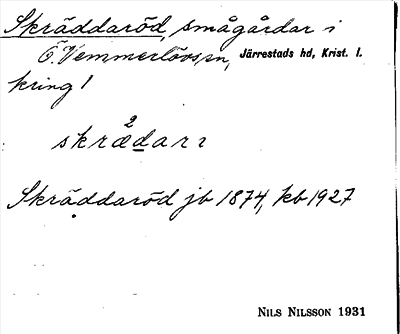 Skräddaröd, smågårdar i
Ö. Vemmerlövs sn, Järrestads hd, Krist. l.
kring 1
2
skrædarɿ
Skräddaröd jb 1874, kb 1927
NILS NILSSON 1931